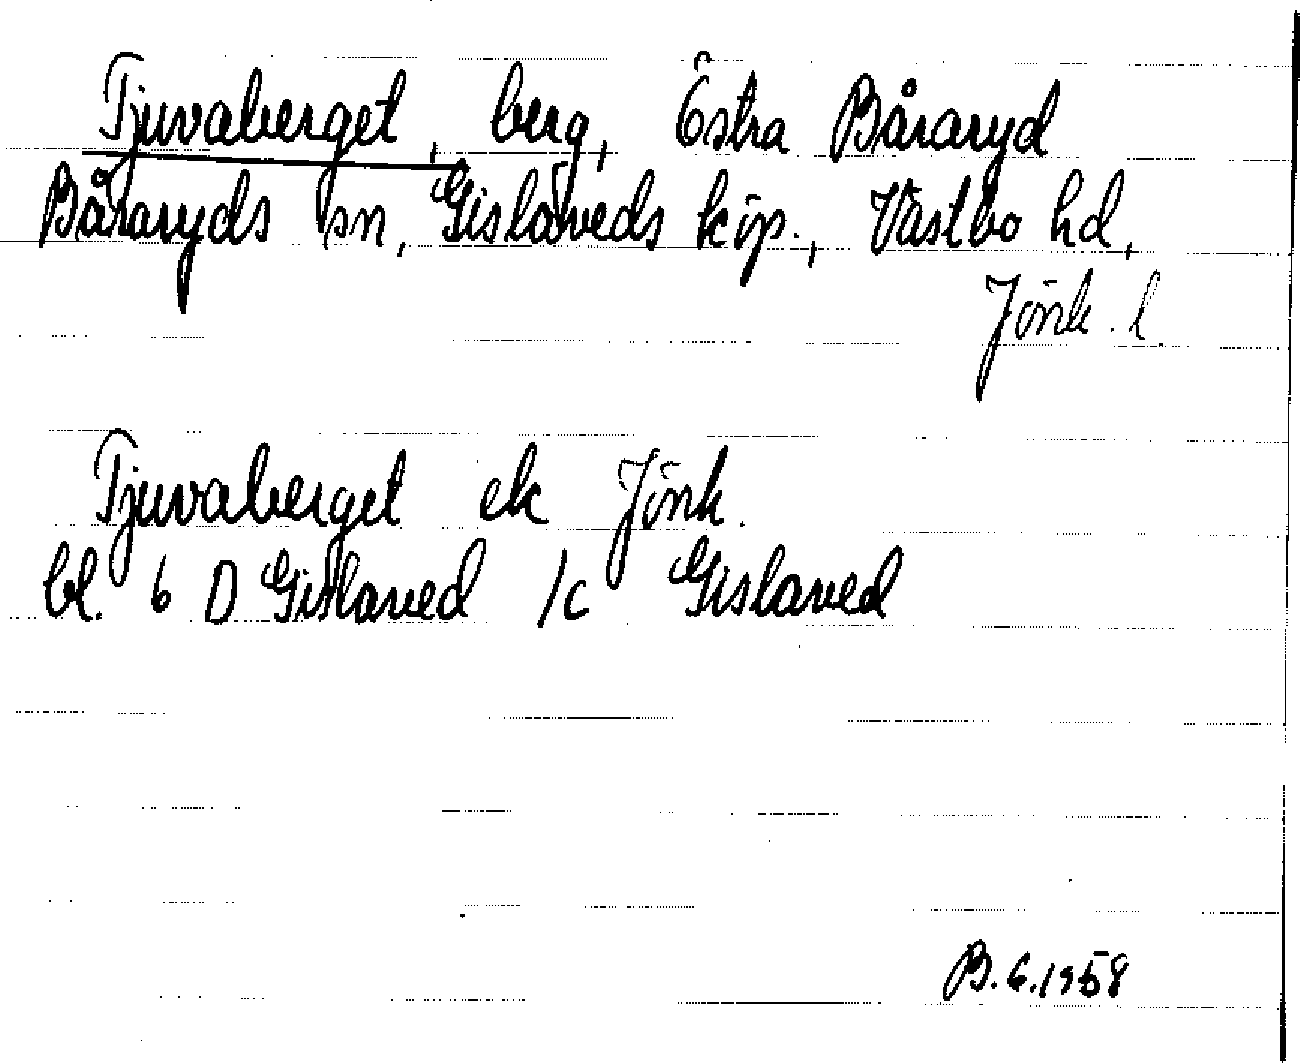 Tjuvaberget, berg, Östra Båraryd
Båraryds sn, Gislaveds köp., Västbo hd,
Jönk. l.
Tjuvaberget ek Jönk.
bl. 6 D Gislaved /c Gislaved
B.G.1958